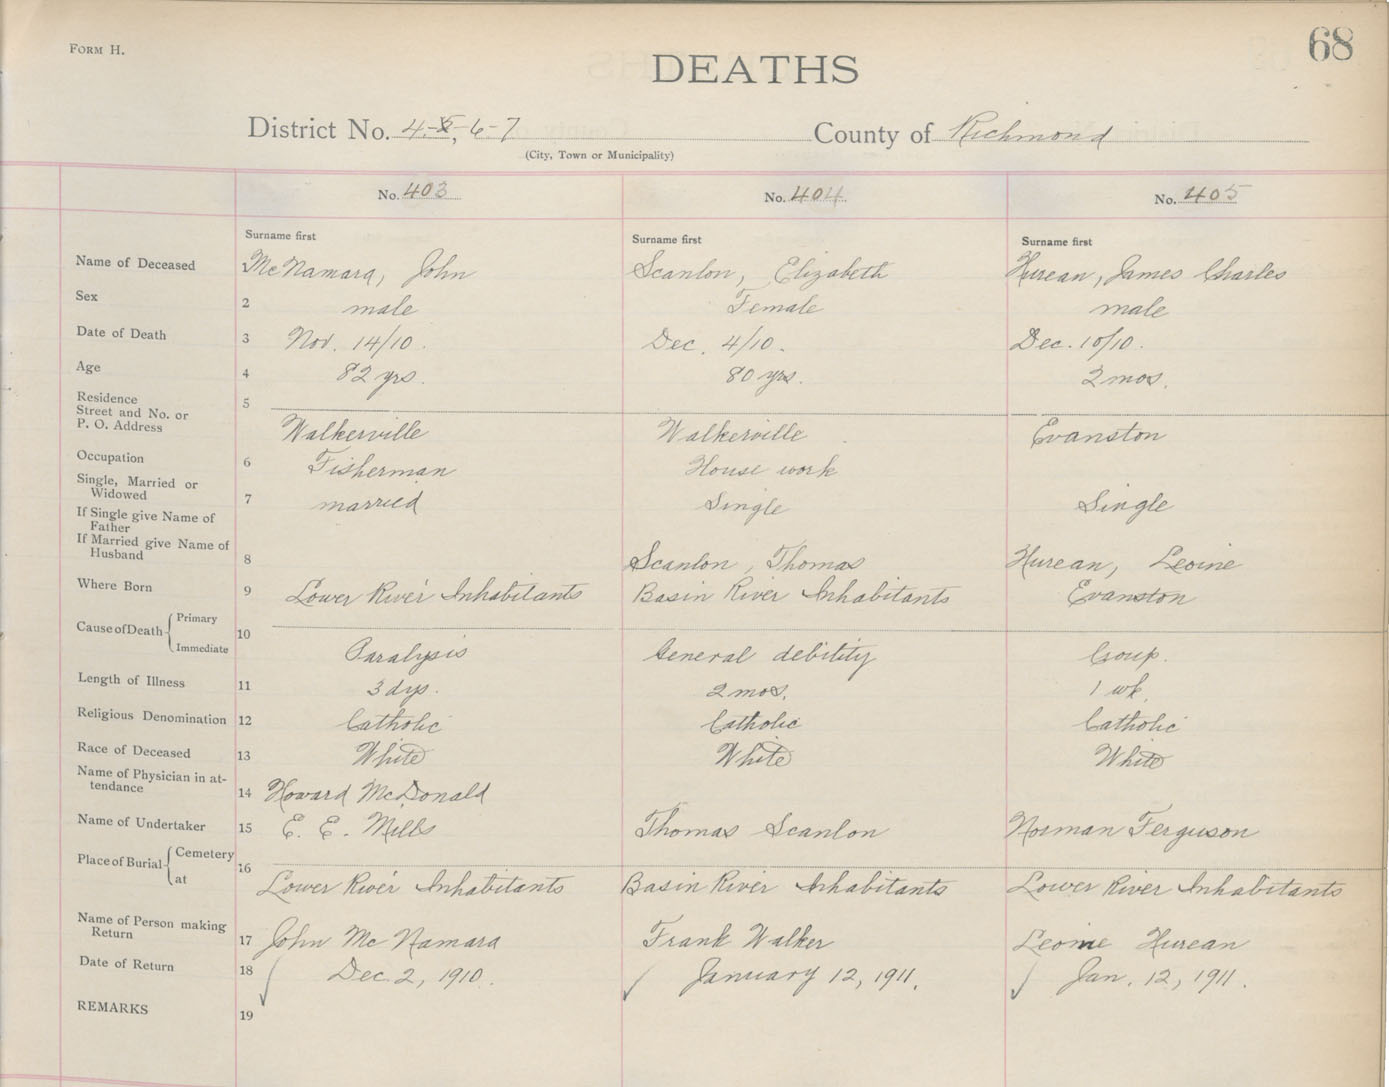 FORM H.
68
DEATHS
District No. 4-5, 6-7 County of Richmond
(City, Town or Municipality)
No. 403 No. 404 No. 405
Surname first Surname first Surname first
Name of Deceased 1 McNamara, John Scanlon, Elizabeth Hurean, James Charles
Sex 2 male Female male
Date of Death 3 Nov. 14/10. Dec. 4/10. Dec. 10/10.
Age 4 82 yrs. 80 yrs. 2 mos.
Residence 5
Street and No. or
P. O. Address Walkerville Walkerville Evanston
Occupation 6 Fisherman House work
Single, Married or
Widowed 7 married Single Single
If Single give Name of
Father
If Married give Name of
Husband 8 Scanlon, Thomas Hurean, Leoine
Where Born 9 Lower River Inhabitants Basin River Inhabitants Evanston
Cause of Death { Primary 10
Immediate Paralysis General debility Croup.
Length of Illness 11 3 dys. 2 mos. 1 wk
Religious Denomination 12 Catholic Catholic Catholic
Race of Deceased 13 White White White
Name of Physician in at-
tendance 14 Howard McDonald
Name of Undertaker 15 E. E. Mills Thomas Scanlon Norman Ferguson
Place of Burial { Cemetery 16
at Lower River Inhabitants Basin River Inhabitants Lower River Inhabitants
Name of Person making
Return 17 John McNamara Frank Walker Leoine Hurean
Date of Return 18 Dec. 2, 1910. January 12, 1911. Jan. 12, 1911.
REMARKS 19